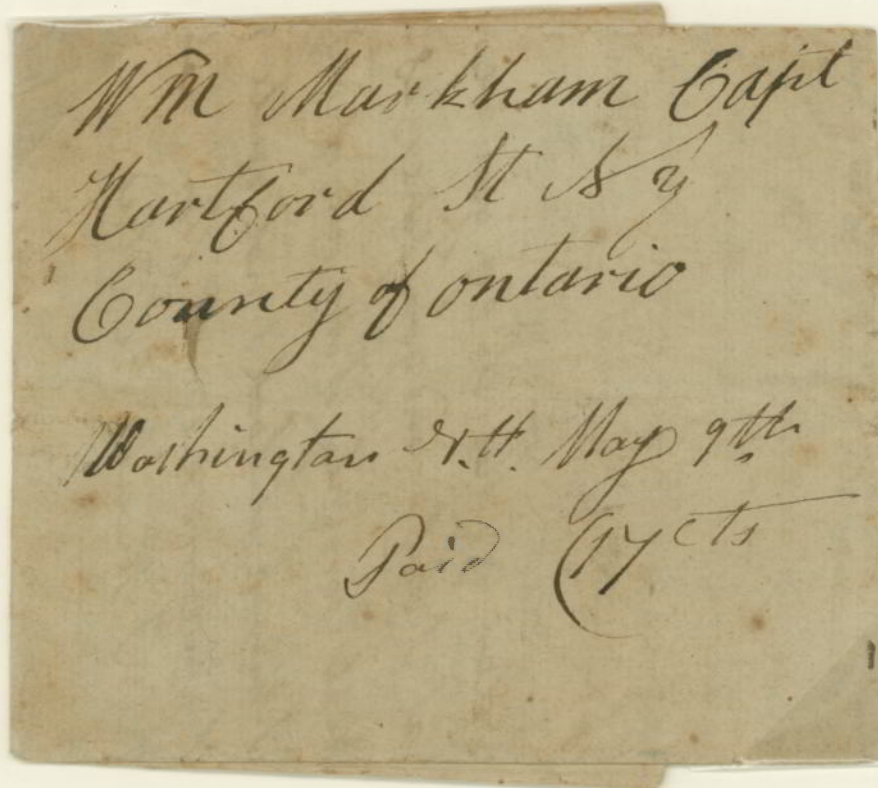 Wm Markham Capt
Hartford St N Y
County of ontario
Washington N.H. May 9th
Paid 17 cts